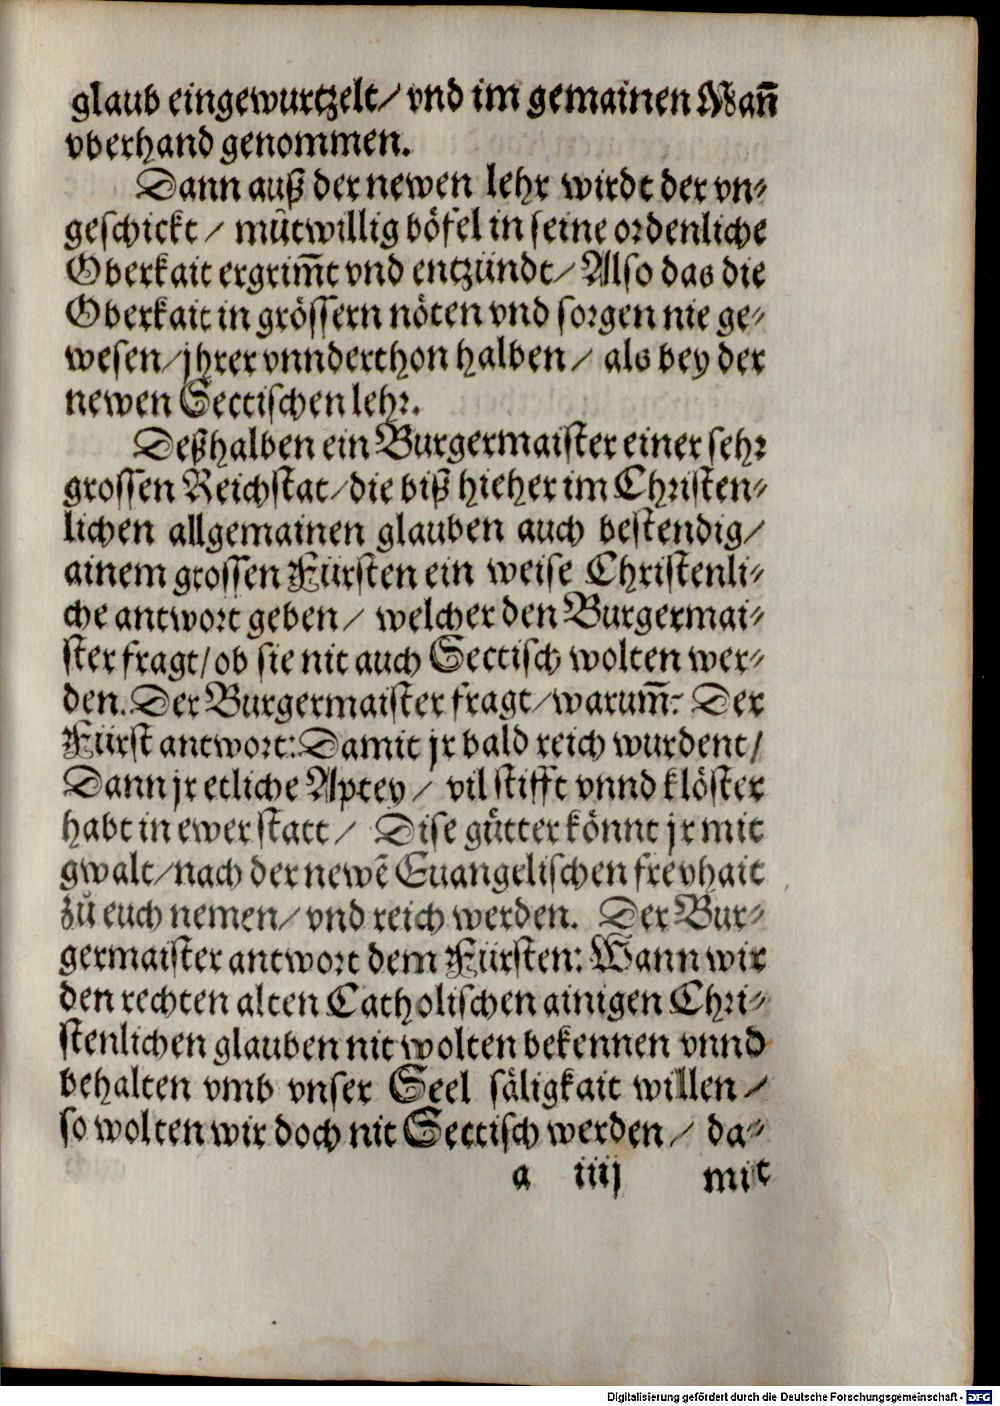 glaub eingewurtzelt/ vnd im gemainen Mañ
vberhand genommen.
Dann auß der newen lehr wirdt der vn-
geschickt/ mütwillig böfel in seine ordenliche
Oberkait ergrim̄t vnd entzündt/ Also das die
Oberkait in grössern nöten vnd sorgen nie ge-
wesen/ jhrer vnnderthon halben/ als bey der
newen Sectischen lehr.
Deßhalben ein Burgermaister einer sehr
grossen Reichstat/ die biß hieher im Christen-
lichen allgemainen glauben auch bestendig/
ainem grossen Fürsten ein weise Christenli-
che antwort geben/ welcher den Burgermai-
ster fragt/ ob sie nit auch Sectisch wolten wer-
den. Der Burgermaister fragt/ warum̄: Der
Fürst antwort: Damit jr bald reich wurdent/
Dann jr etliche Aptey/ vil stifft vnnd klöster
habt in ewer statt/ Dise gütter könnt jr mit
gwalt/ nach der newē Euangelischen freyhait
zů euch nemen/ vnd reich werden. Der Bur-
germaister antwort dem Fürsten: Wann wir
den rechten alten Catholischen ainigen Chri-
stenlichen glauben nit wolten bekennen vnnd
behalten vmb vnser Seel säligkait willen/
so wolten wir doch nit Sectisch werden/ da-
a iiij mit
Digitalisierung gefördert durch die Deutsche Forschungsgemeinschaft - DFG